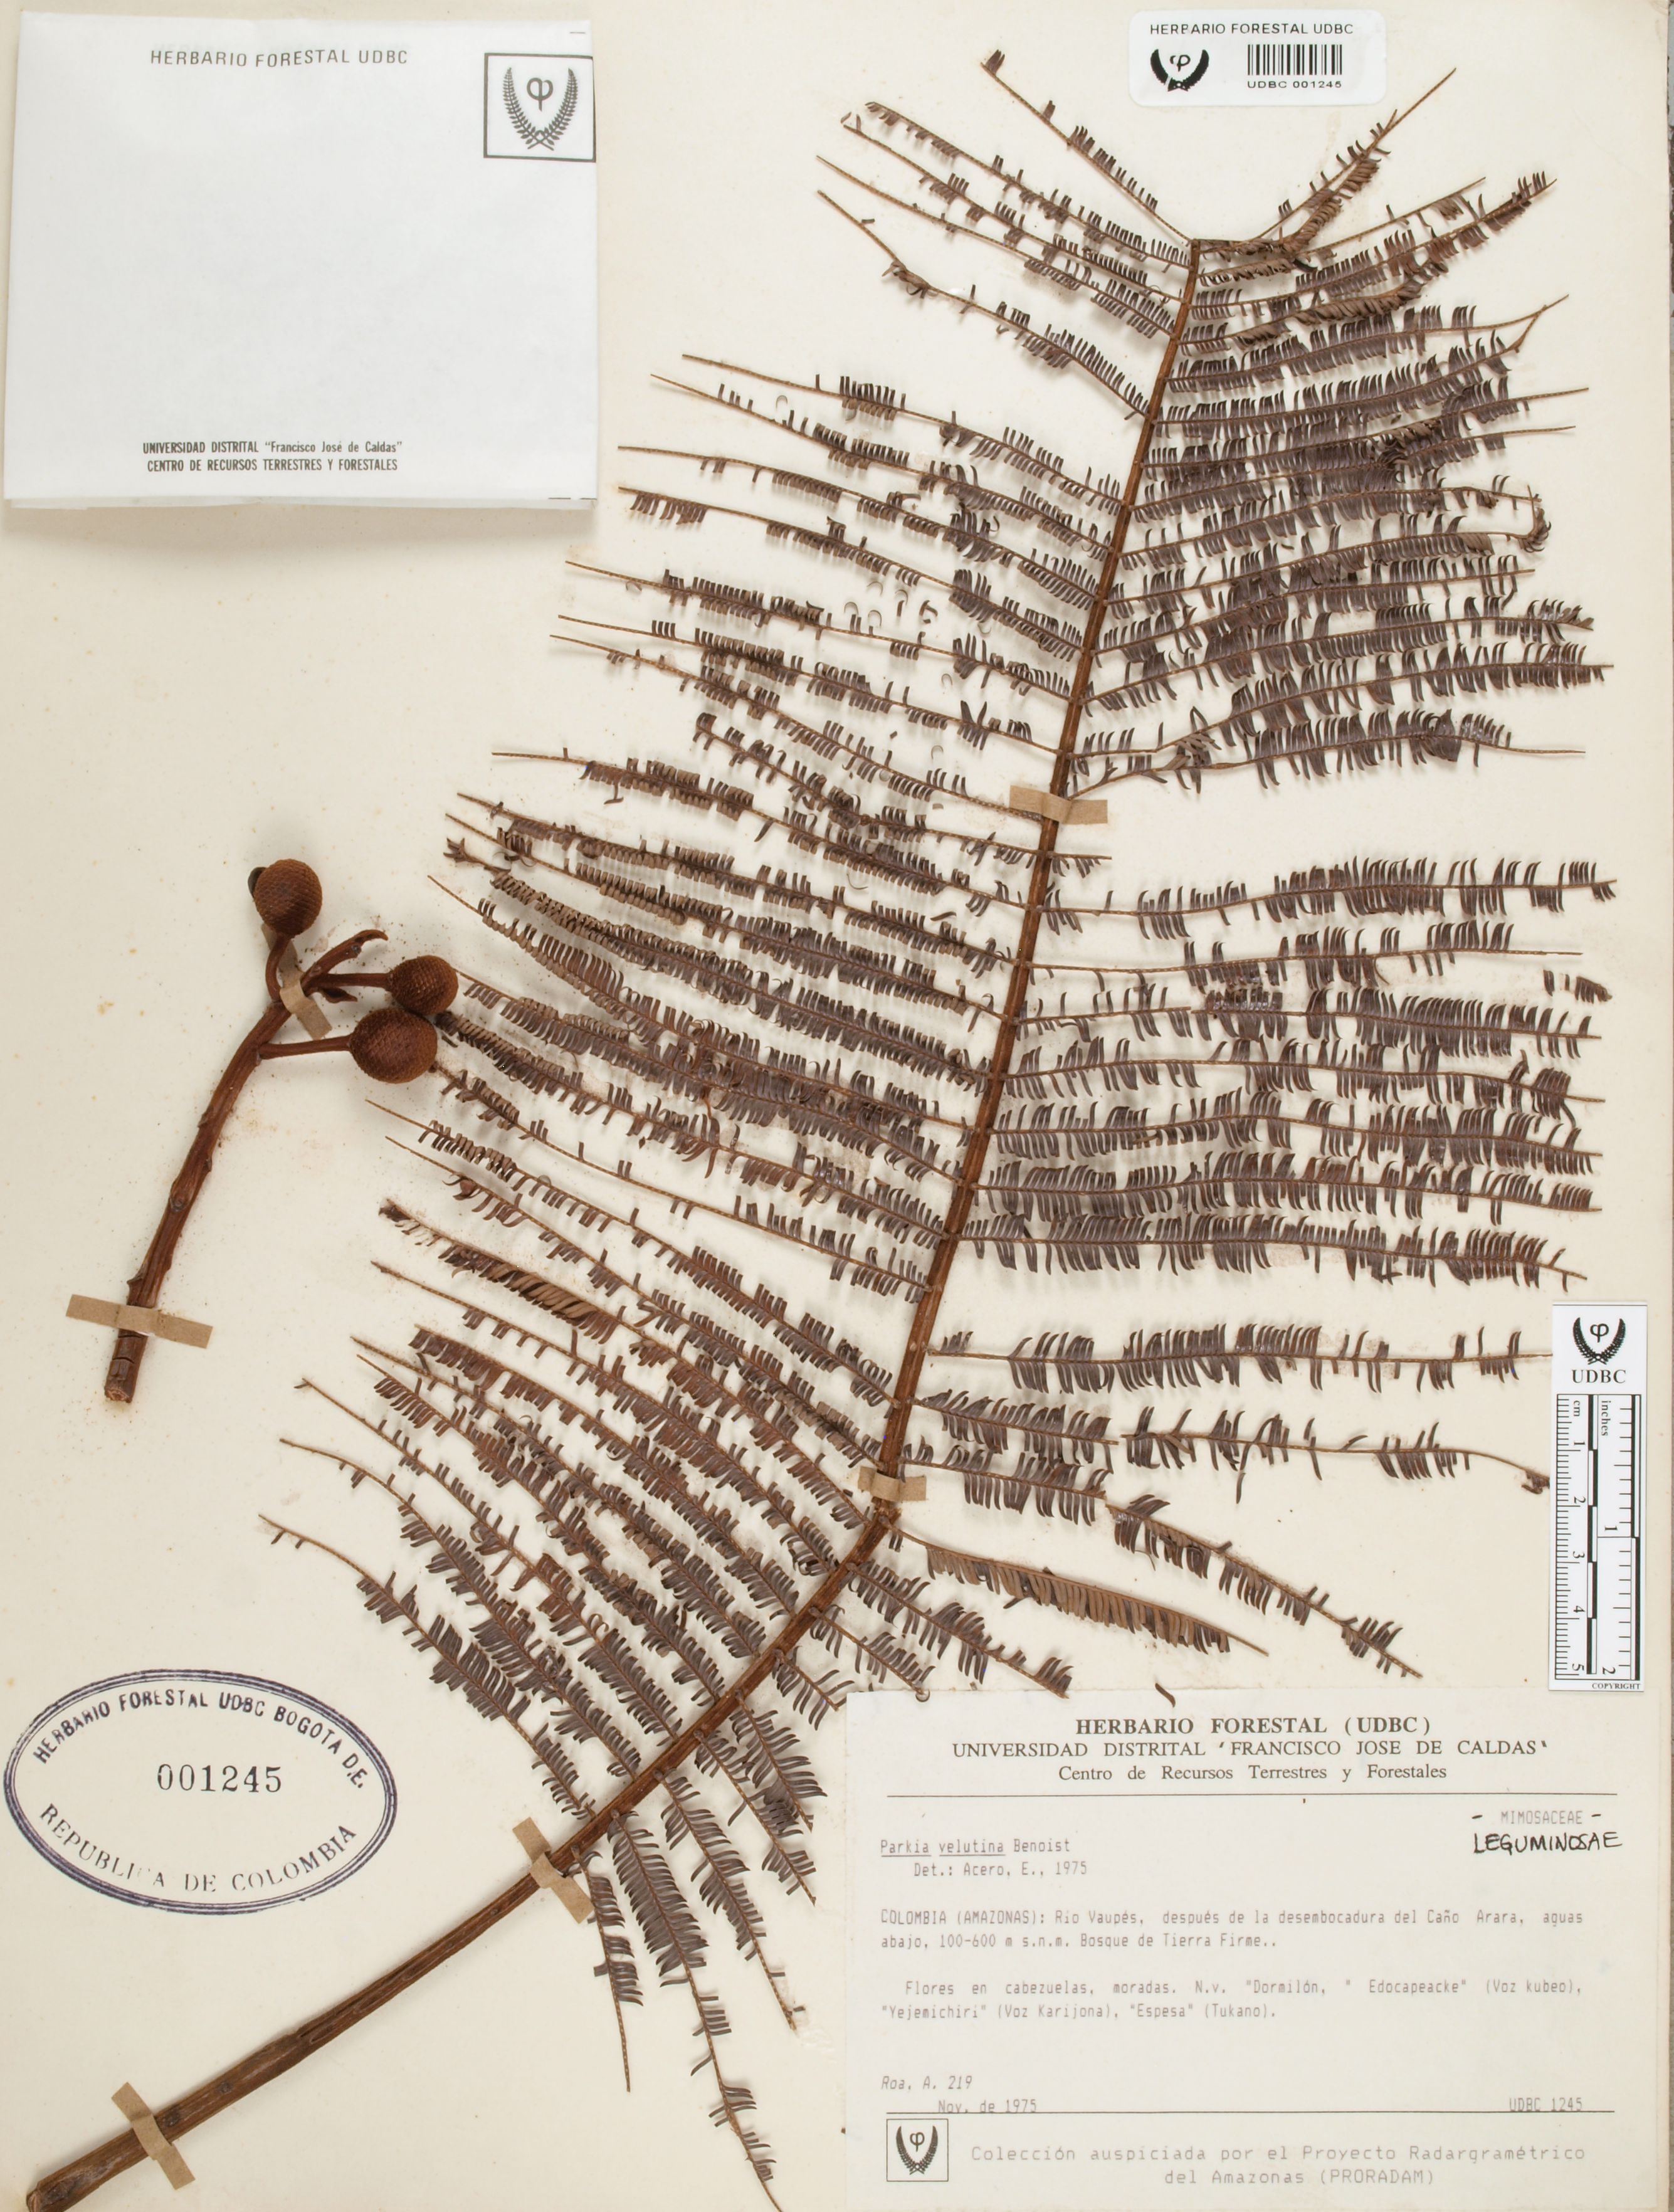 HERBARIO FORESTAL UDBC
φ
UNIVERSIDAD DISTRITAL "Francisco José de Caldas"
CENTRO DE RECURSOS TERRESTRES Y FORESTALES
HERBARIO FORESTAL UDBC
φ
UDBC 001245
φ
UDBC
cm
inches
1
2
3
4
5
1
2
COPYRIGHT
HERBARIO FORESTAL UDBC BOGOTA D.E.
001245
REPUBLICA DE COLOMBIA
HERBARIO FORESTAL (UDBC)
UNIVERSIDAD DISTRITAL 'FRANCISCO JOSE DE CALDAS'
Centro de Recursos Terrestres y Forestales
- MIMOSACEAE -
LEGUMINOSAE
Parkia velutina Benoist
Det.: Acero, E., 1975
COLOMBIA (AMAZONAS): Río Vaupés, después de la desembocadura del Caño Arara, aguas
abajo, 100-600 m s.n.m. Bosque de Tierra Firme..
Flores en cabezuelas, moradas. N.v. "Dormilón, " Edocapeacke" (Voz kubeo),
"Yejemichiri" (Voz Karijona), "Espesa" (Tukano).
Roa, A. 219
Nov. de 1975
UDBC 1245
φ
Colección auspiciada por el Proyecto Radargramétrico
del Amazonas (PRORADAM)